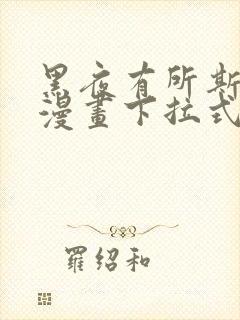 黑夜有所斯
漫畫下拉式
羅紹和